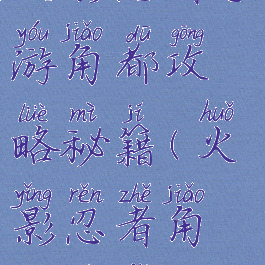 yóu jiǎo dū gōng
游角都攻
lüè mì jí huǒ
略秘籍(火
yǐng rěn zhě jiǎo
影忍者角